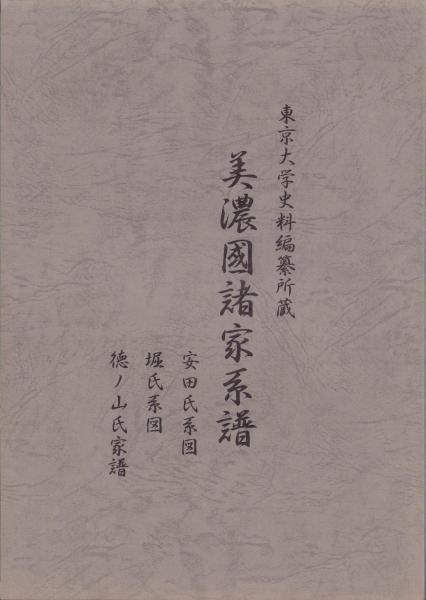 東京大学史料編纂所蔵
美濃國諸家系譜
安田氏系図
堀氏系図
徳ノ山氏家譜